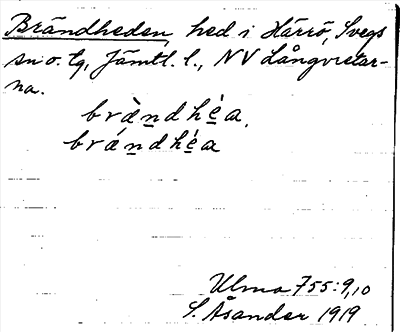 Brändheden, hed i Härrö, Svegs
sn o. tg, Jämtl. l., NV Långvretar-
na.
brä̀ndhé̲a.
brándhé̲a
Ulma 755:9,10
S. Åsander 1919